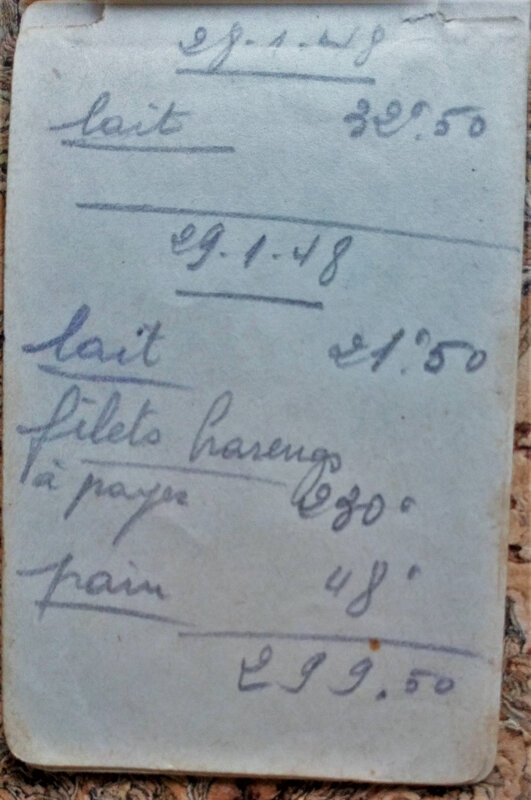 28.1.48
lait 32f.50
29.1.48
lait 21f.50
filets harengs
à payer 230f
pain 48f
299.50